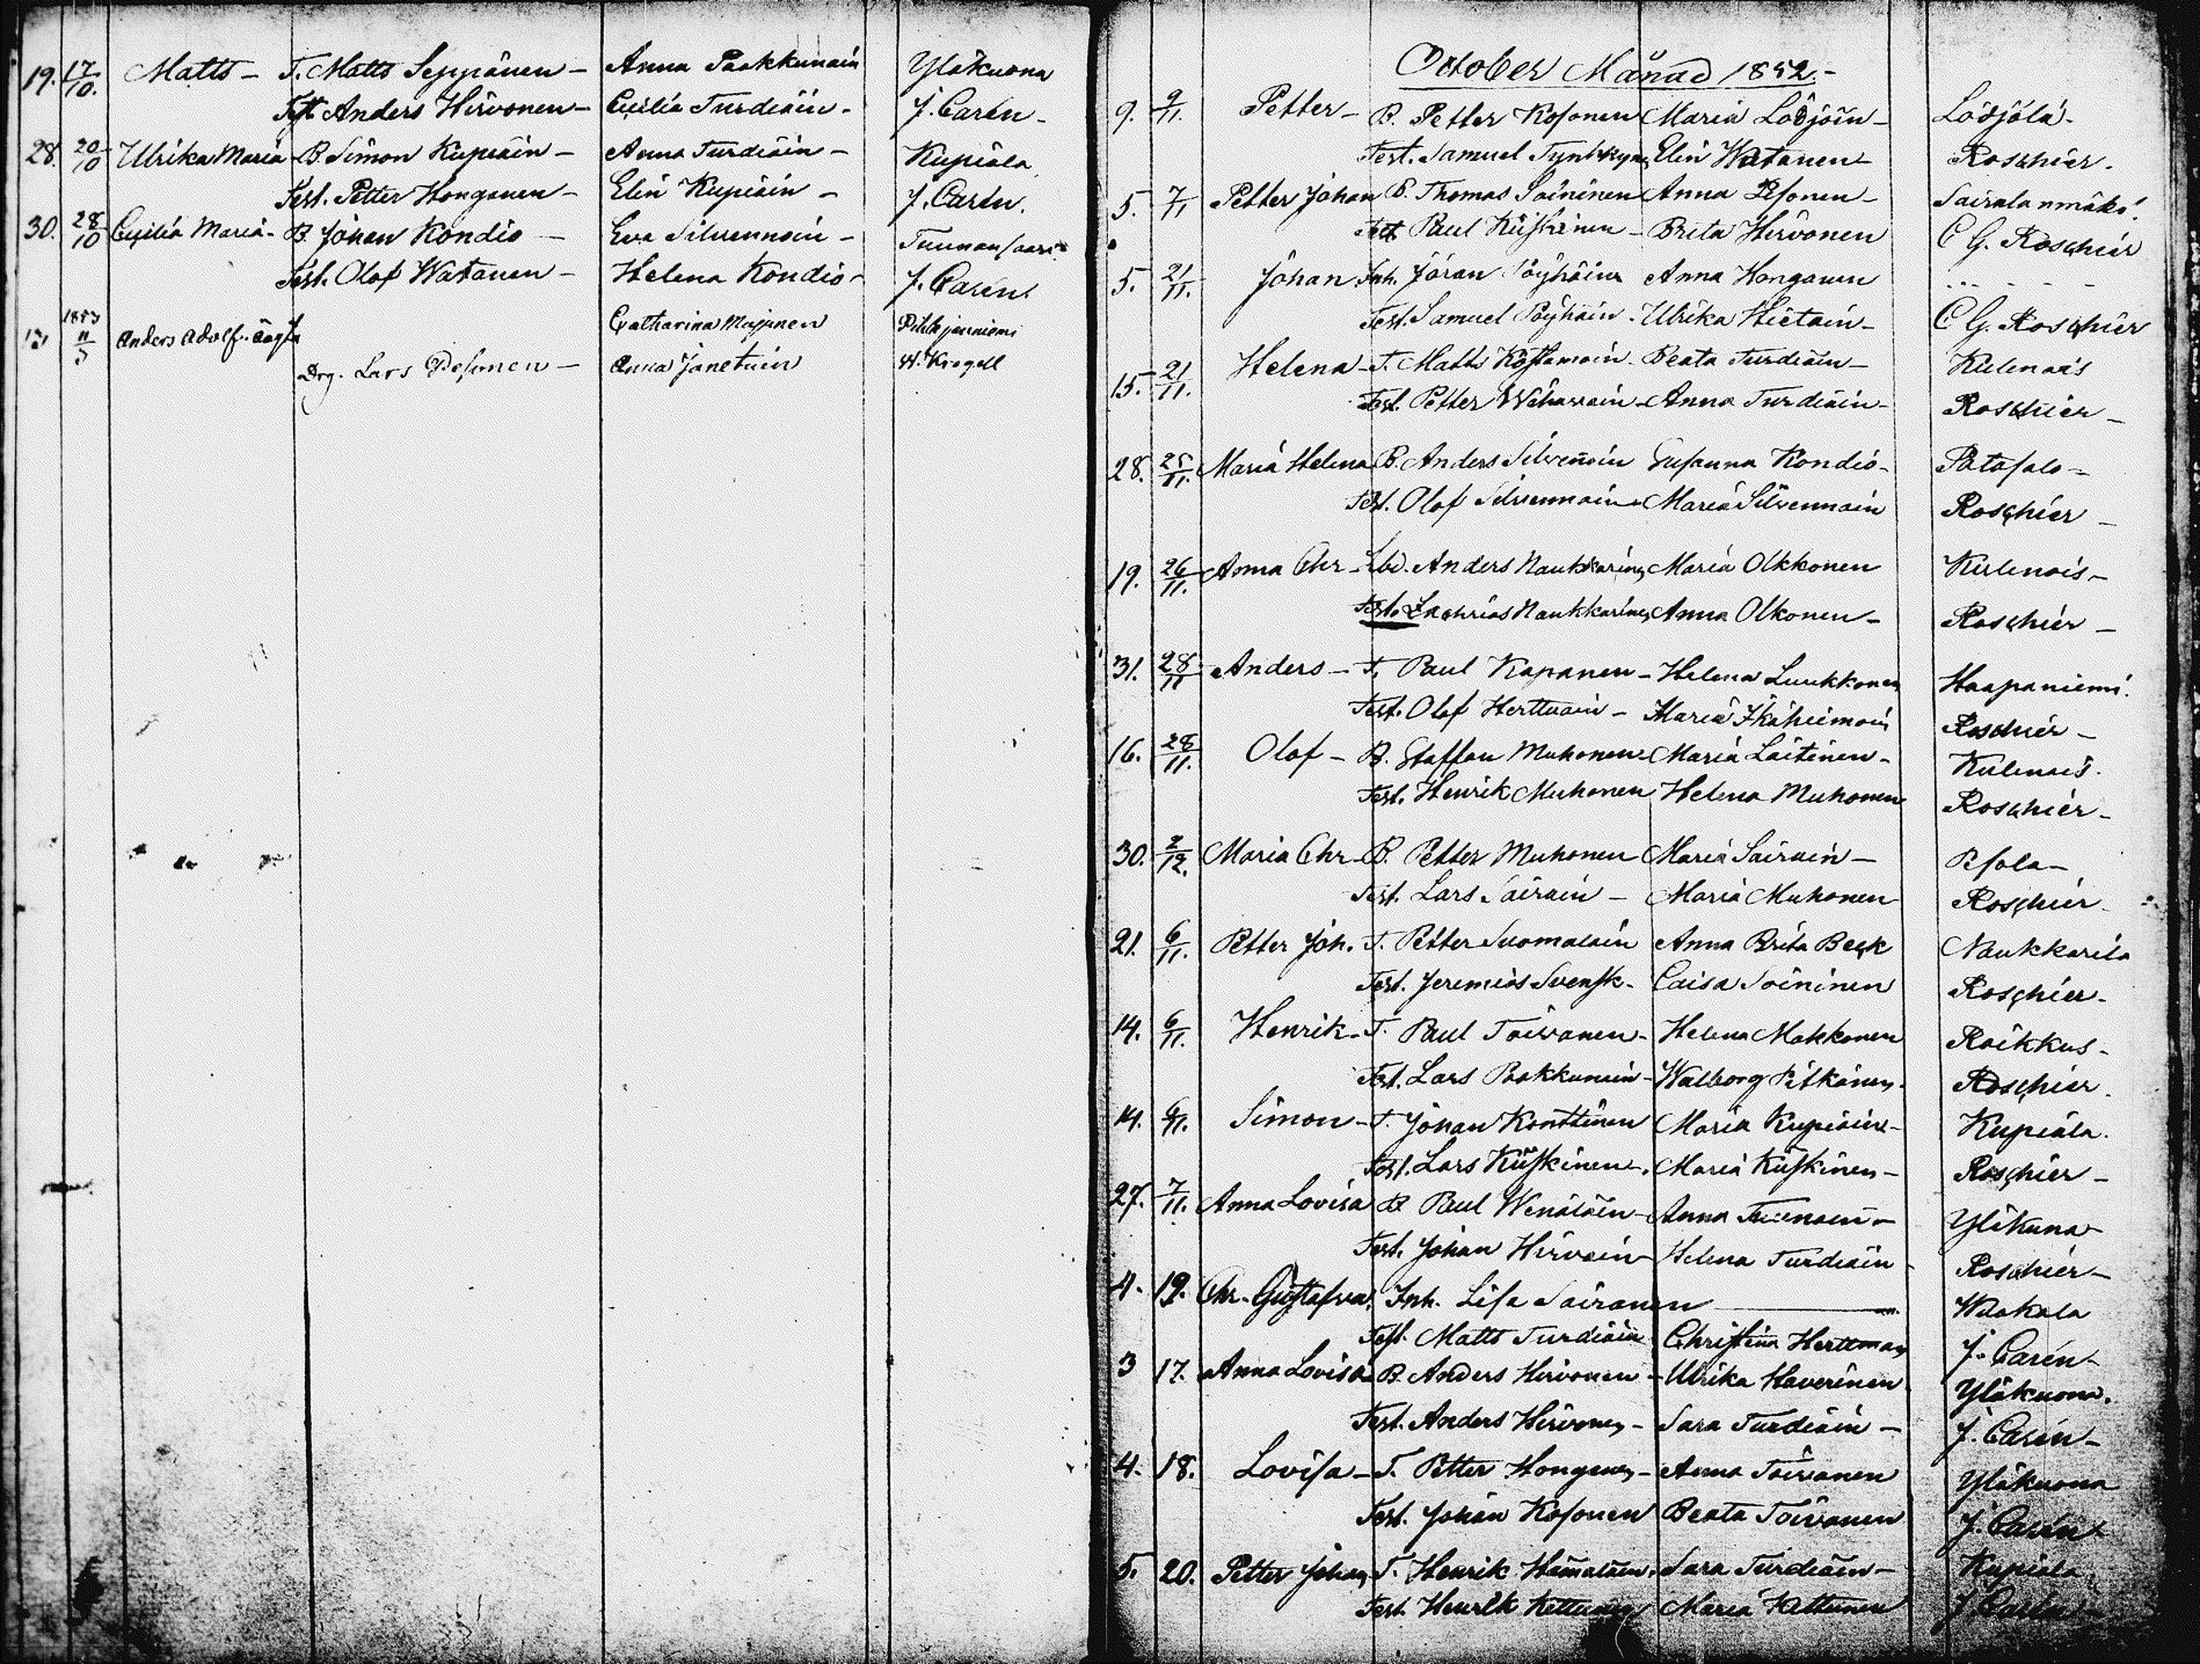 19. 17/10. Matts – T. Matts Seppänen – Anna Paakkunain Yläkuona
Test Anders Hirvonen – Cecilia Turdiain – J. Carén –
28. 20/10 Ulrika Maria – B. Simon Kupiain – Anna Turdiain – Kupiala
Test. Petter Honganen – Elin Kupiain – J. Carén.
30. 28/10 Cecilia Maria – B. Johan Kondio – Eva Silvennoin – Tuunansaari
Test. Olof Watanen – Helena Kondio – J. Carén.
1853
13, 11/3 Anders Adolf. Catharina Mujunen Pihlajaniemi
Drg. Lars Pesonen – Anna Janetuin W. Krogell
October Månad 1852. –
9. 9/11. Petter – B. Petter Kosonen Maria Lödjöin – Lödjölä –
Test. Samuel Elin Watanen – Roschier.
5. 7/11 Petter Johan B. Thomas Soininen Anna Pesonen – Sairalanmäki.
Test Paul Kiiskinen – Brita Hirvonen C G. Roschier
5. 21/11. Johan Inh. Jöran Pöyhöin Anna Honganen . . . – – –
Test. Samuel Pöyhöin. Ulrika Hietain – C G. Roschier
15. 21/11. Helena – T. Matts Beata Turdiain – Kulenois
Test. Petter Anna Turdiain – Roschier –
28. 25/11. Maria Helena B. Anders Silvennoin Susanna Kondio – Patasalo –
Test. Olof Silvennoin – Maria Silvennoin Roschier –
19. 26/11. Anna Chr – Lbd. Anders Naukkarinen Maria Olkkonen Kulenois –
Test. Zachrias Naukkarinen Anna Olkonen – Roschier –
31. 28/11 Anders – T. Paul Kapanen – Helena Luukkonen Haapaniemi.
Test. Olof Herttuain – Maria Ikäheimoin Roschier –
16. 28/11. Olof – B. Staffan Muhonen – Maria Laitinen – Kulenois.
Test. Henrik Muhonen Helena Muhonen Roschier –
30. 2/12. Maria Chr – B. Petter Muhonen Maria Sairain – Pesola –
Test. Lars Sairain – Maria Muhonen Roschier
21. 6/11. Petter Joh. T. Petter Suomalain Anna Brita Beck Naukkarila
Test. Jeremias Svensk – Caisa Soininen Roschier –
14. 6/11. Henrik – T. Paul Toivanen – Helena Makkonen Raikkus –
Test. Lars Paakkunain – Walborg Pitkänen. Roschier.
14. 6/11. Simon – T. Johan Konttinen Maria Kupiain – Kupiala.
Test. Lars Kiiskinen –. Maria Kiiskinen – Roschier –
27. 7/11. Anna Lovisa B Paul Wenäläin – Anna Yläkuna –
Test. Johan Hirvoin – Helena Turdiain Roschier –
4. 19. Chr. Gustafva. Inh. Lisa Sairanen Waakala
Test. Matts Turdiain Christina Herttman J. Carén –
3 17. Anna Lovisa B. Anders Hirvonen – Ulrika Haverinen Yläkuona.
Test. Anders Hirvonen – Sara Turdiain – J. Carén –
4. 18. Lovisa – T. Petter Honganen – Anna Toivanen Yläkuona
Test. Johan Kosonen Beata Toivanen J. Carén
5. 20. Petter Johan T. Henrik Hämäläin. Sara Turdiain – Kupiala
Test Henrik Kettunen Maria Kettunen J Carén